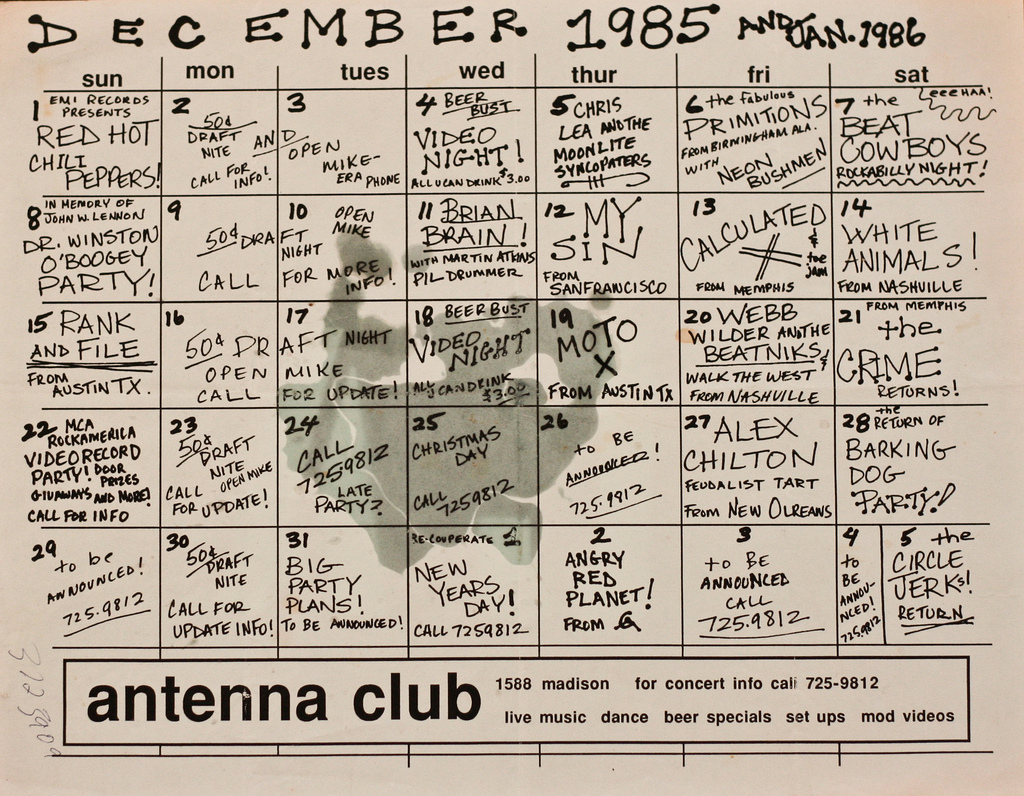 DECEMBER 1985 AND JAN. 1986
sun mon tues wed thur fri sat
1 EMI RECORDS
PRESENTS
RED HOT
CHILI
PEPPERS!
2
50¢
DRAFT
NITE AND
CALL FOR
INFO!
3
OPEN
MIKE-
ERA PHONE
4 BEER
BUST
VIDEO
NIGHT!
ALL U CAN DRINK $3.00
5 CHRIS
LEA AND THE
MOONLITE
SYNCOPATERS
6 the Fabulous
PRIMITONS
FROM BIRMINGHAM ALA.
WITH
NEON
BUSHMEN
7 the eeeHAA!
BEAT
COWBOYS
ROCKABILLY NIGHT!
8 IN MEMORY OF
JOHN W. LENNON
DR. WINSTON
O'BOOGEY
PARTY!
9
50¢ DRAFT
CALL
10 OPEN
MIKE
NIGHT
FOR MORE
INFO!
11 BRIAN
BRAIN!
WITH MARTIN ATKINS
PIL DRUMMER
12 MY
SIN
FROM
SAN FRANCISCO
13
CALULATED
& toe
jam
FROM MEMPHIS
14
WHITE
ANIMALS!
FROM NASHVILLE
15 RANK
AND FILE
FROM
AUSTIN TX.
16
50¢ DRAFT
OPEN
CALL
17
NIGHT
MIKE
FOR UPDATE!
18 BEER BUST
VIDEO
NIGHT
ALL U CAN DRINK
$3.00
19
MOTO
X
FROM AUSTIN TX
20 WEBB
WILDER AND THE
BEATNIKS &
WALK THE WEST
FROM NASHVILLE
21 FROM MEMPHIS
the
CRIME
RETURNS!
22 MCA
ROCKAMERICA
VIDEO RECORD
PARTY! DOOR
PRIZES
GIVAWAYS AND MORE!
CALL FOR INFO
23
50¢
DRAFT
NITE
OPEN MIKE
CALL
FOR UPDATE!
24
CALL
7259812
LATE
PARTY?
25
CHRISTMAS
DAY
CALL 7259812
26
to BE
ANNOUNCED!
725.9812
27 ALEX
CHILTON
FEUDALIST TART
FROM NEW ORLEANS
28 the
RETURN OF
BARKING
DOG
PARTY!
29
to be
ANNOUNCED!
725.9812
30
50¢
DRAFT
NITE
CALL FOR
UPDATE INFO!
31
BIG
PARTY
PLANS!
TO BE ANNOUNCED!
RE-COUPERATE 1
NEW
YEARS
DAY!
CALL 7259812
2
ANGRY
RED
PLANET!
FROM
3
to BE
ANNOUNCED
CALL
725.9812
4
to
BE
ANNOU-
NCED!
725.9812
5 the
CIRCLE
JERKS!
RETURN
antenna club
1588 madison for concert info call 725-9812
live music dance beer specials set ups mod videos